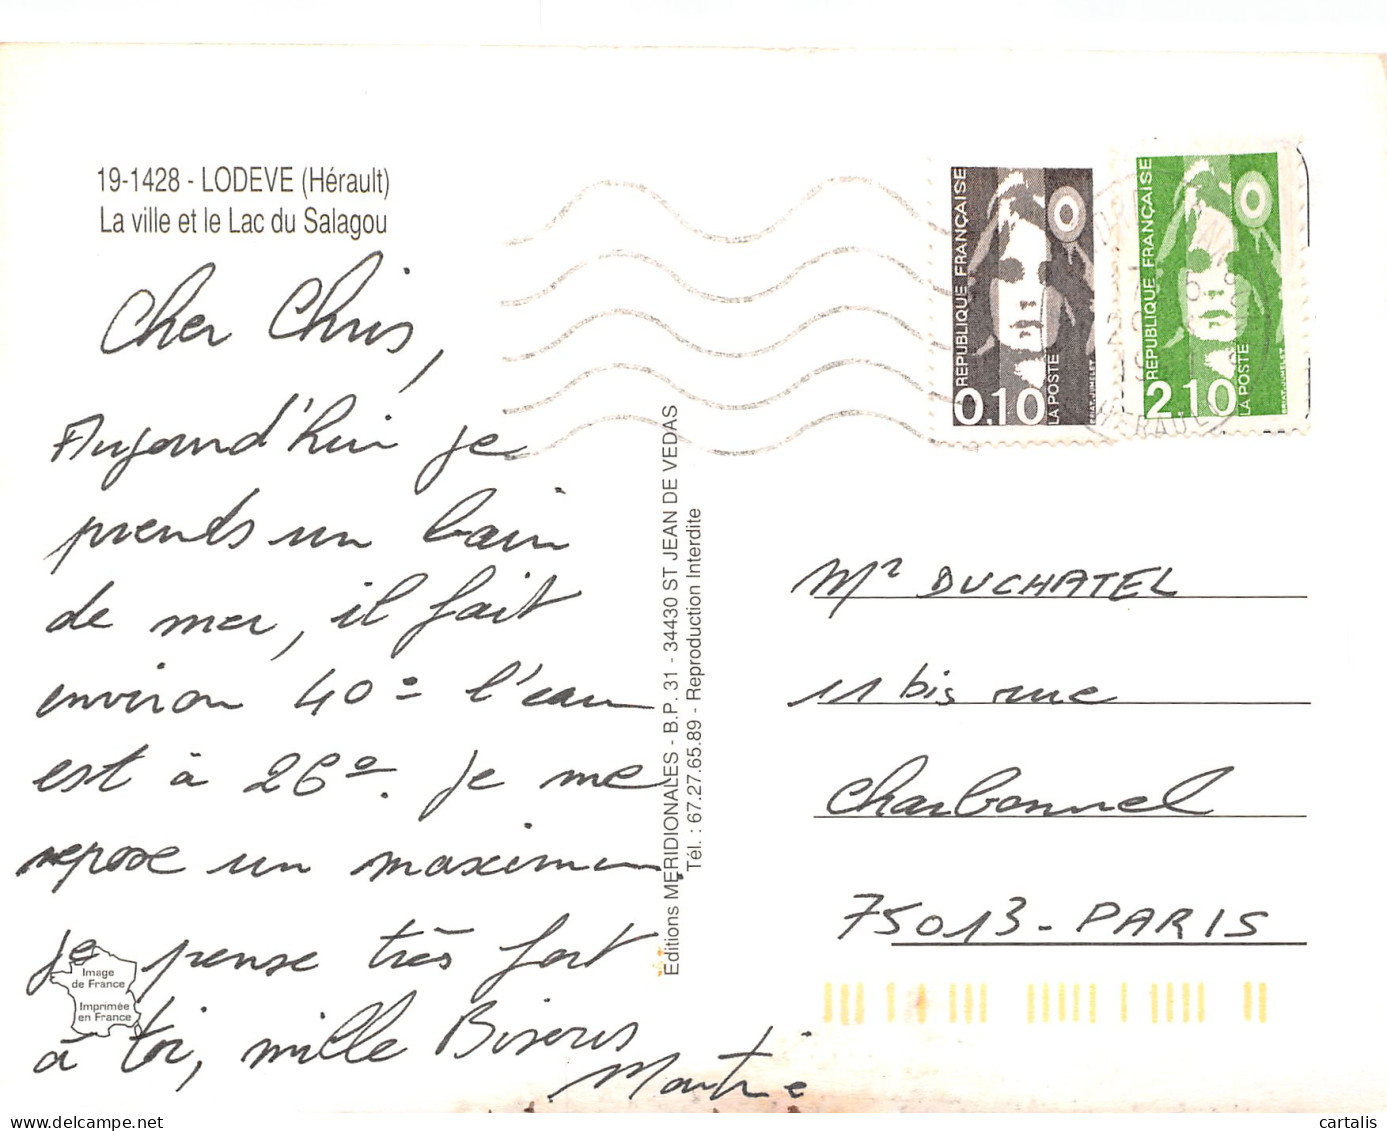 19-1428 - LODEVE (Hérault)
La ville et le Lac du Salagou
Cher Chris,
Aujourd'hui je
prends un bain
de mer, il fait
environ 40° l'eau
est à 26°. je me
repose un maximum
je pense très fort
à toi, mille Bisous
Image
de France
Imprimée
en France
Editions MERIDIONALES - B.P. 31 - 34430 ST JEAN DE VEDAS
Tél. : 67.27.65.89 - Reproduction Interdite
REPUBLIQUE FRANÇAISE
0,10
LA POSTE
BRIAT-JUMELET
REPUBLIQUE FRANÇAISE
2,10
LA POSTE
BRIAT-JUMELET
HERAULT
Mr DUCHATEL
11 bis rue
Charbonnel
75013 - PARIS
cartalis